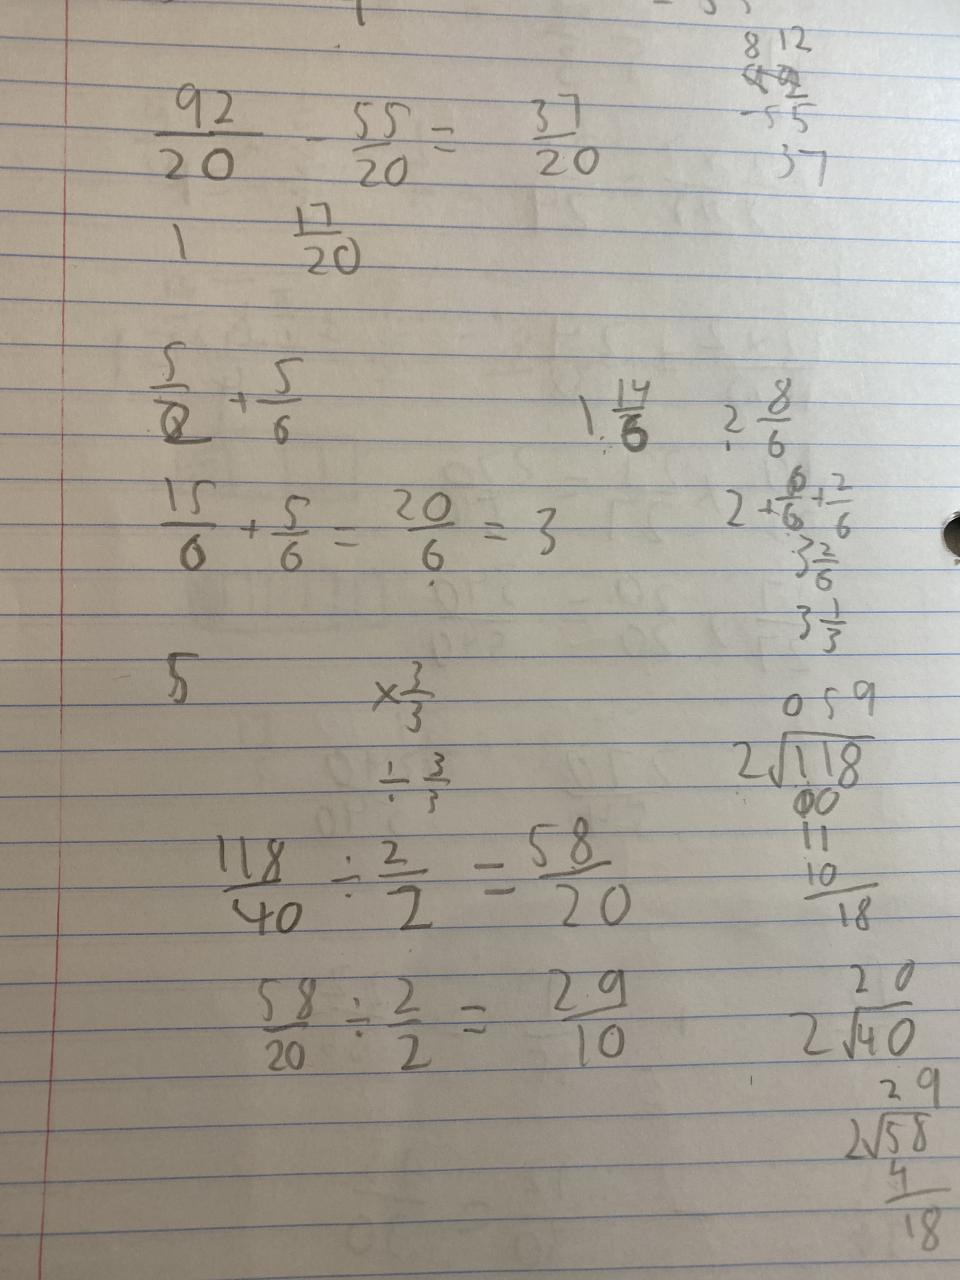 8 12
92
92/20 - 55/20 = 37/20
-55
37
1 17/20
5/2 + 5/6
1 14/6 2 8/6
15/6 + 5/6 = 20/6 = 3
2 + 6/6 + 2/6
3 2/6
3 1/3
5
× 3/3
059
÷ 3/3
2√118
00
11
10
18
118/40 ÷ 2/2 = 58/20
58/20 ÷ 2/2 = 29/10
20
2√40
29
2√58
4
18